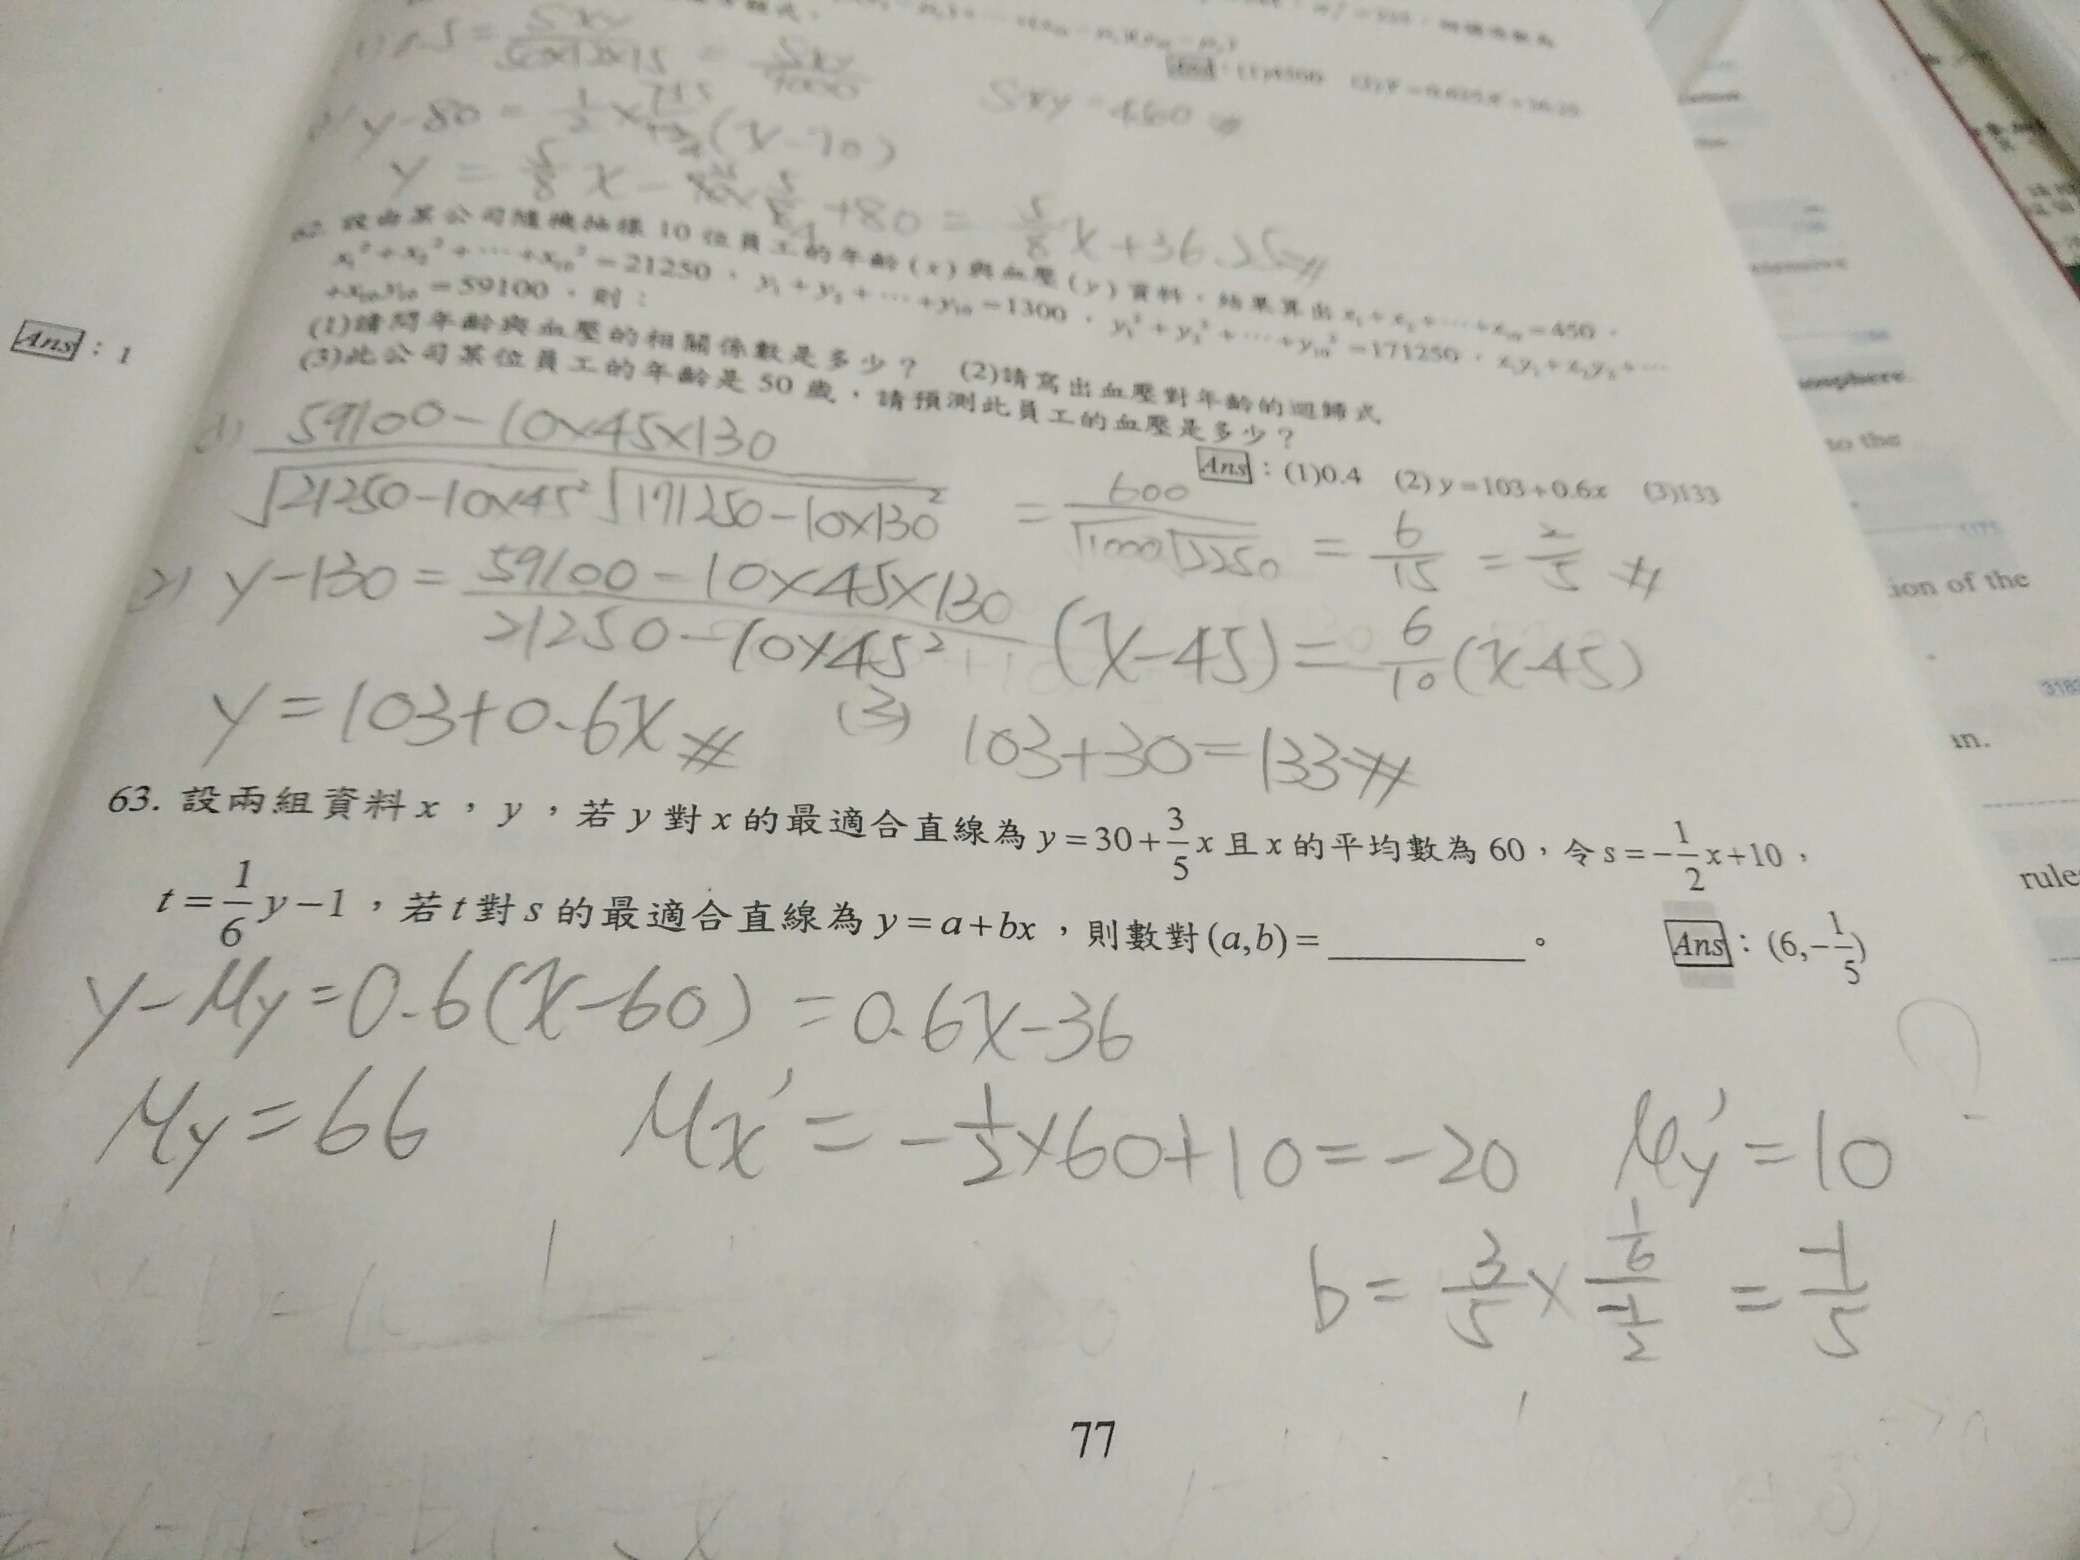 1) 0.5 = Sxy / 50×12×15 = Sxy / 9000
Sxy = 4500 #
2) y-80 = 1/2 × (x-70)
y = 5/8 x - +80 = 5/8 x + 36.25 #
62. 設由某公司隨機抽樣 10 位員工的年齡(x)與血壓(y)資料，結果算出 x₁+x₂+⋯+x₁₀=450，
x₁²+x₂²+⋯+x₁₀²=21250，y₁+y₂+⋯+y₁₀=1300，y₁²+y₂²+⋯+y₁₀²=171250，x₁y₁+x₂y₂+⋯
+x₁₀y₁₀=59100，則：
(1)請問年齡與血壓的相關係數是多少？ (2)請寫出血壓對年齡的迴歸式
(3)此公司某位員工的年齡是 50 歲，請預測此員工的血壓是多少？
Ans：(1)0.4 (2) y=103+0.6x (3)133
Ans：1
(1) 59100-10×45×130 / √21250-10×45² √171250-10×130² = 600 / √1000 √2250 = 6/15 = 2/5 #
2) y-130 = 59100-10×45×130 / 21250-10×45² (x-45) = 6/10 (x-45)
y=103+0.6x # (3) 103+30=133 #
63. 設兩組資料 x，y，若 y 對 x 的最適合直線為 y=30+3/5 x 且 x 的平均數為 60，令 s=-1/2 x+10，
t=1/6 y-1，若 t 對 s 的最適合直線為 y=a+bx，則數對(a,b)=＿＿＿＿。 Ans：(6,-1/5)
y-μy=0.6(x-60)=0.6x-36
μy=66 μx'=-1/2×60+10=-20 μy'=10
b=3/5×(1/6)/(-1/2)=-1/5
77
to the
ion of the
in.
rule